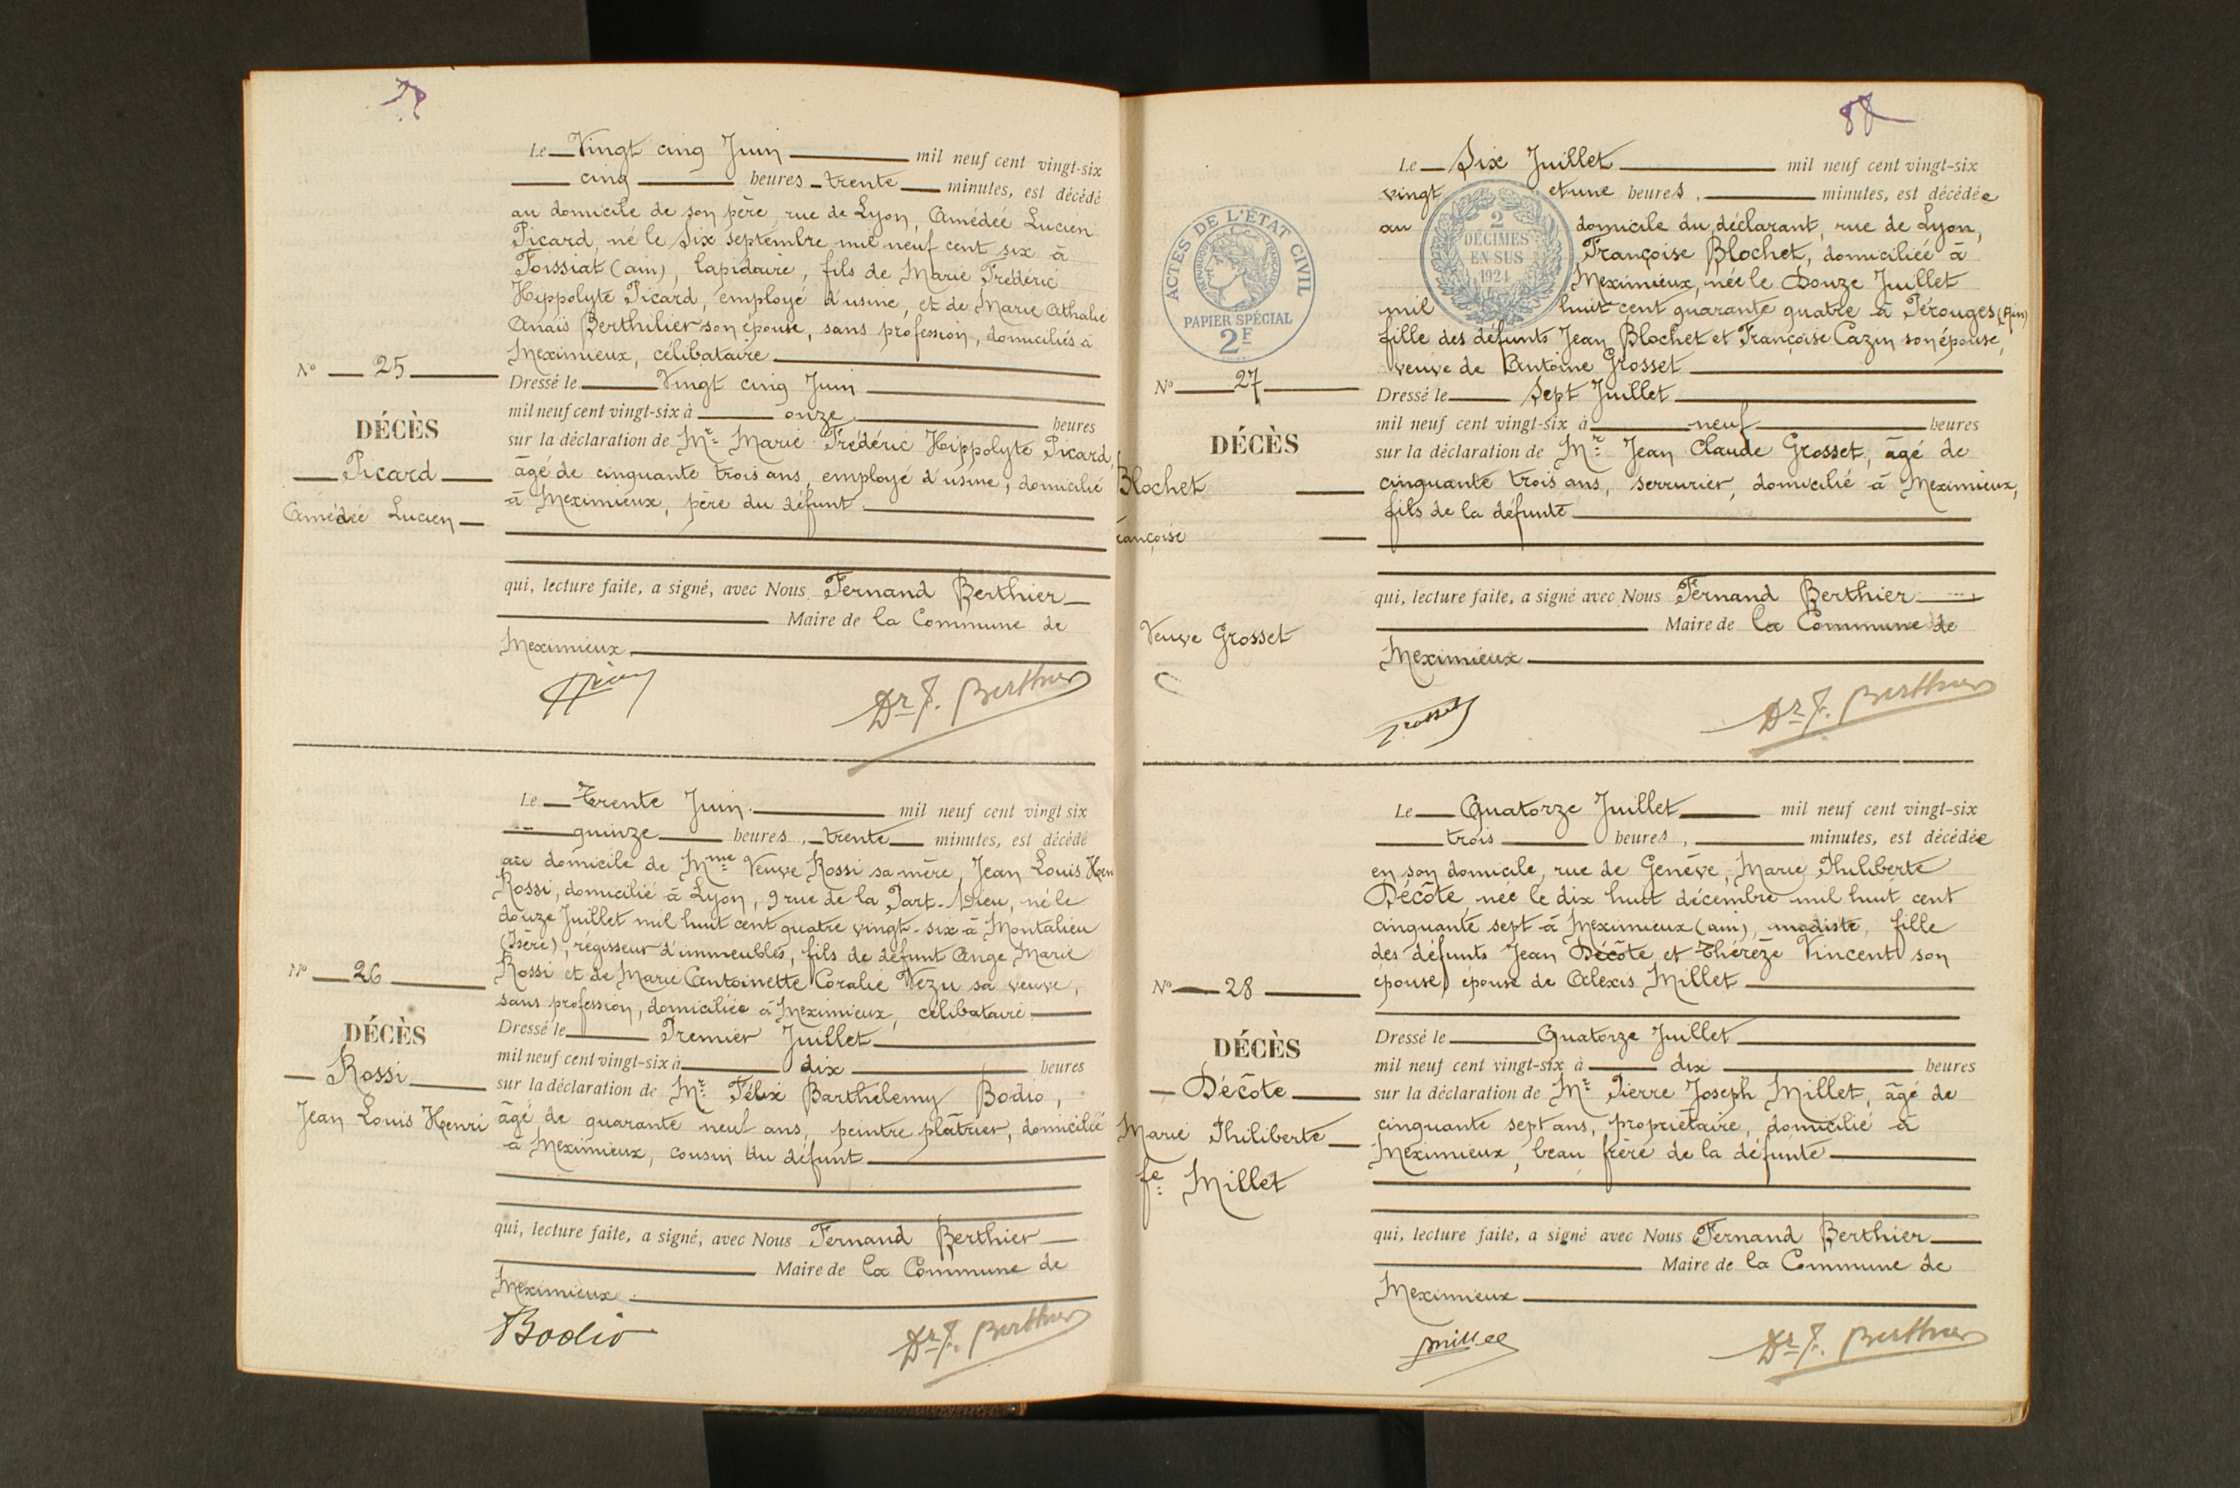 Le Vingt cinq Juin mil neuf cent vingt-six
cinq heures trente minutes, est décédé
au domicile de son père, rue de Lyon, Amédée Lucien
Picard, né le Six septembre mil neuf cent six à
Foissiat (ain), lapidaire, fils de Marie Frédéric
Hippolyte Picard, employé d'usine, et de Marie Athalie
Anaïs Berthilier son épouse, sans profession, domiciliés à
Meximieux, célibataire
N° 25
DÉCÈS
Picard
Amédée Lucien
Dressé le Vingt cinq Juin
mil neuf cent vingt-six à onze heures
sur la déclaration de Mr Marie Frédéric Hippolyte Picard,
âgé de cinquante trois ans, employé d'usine, domicilié
à Meximieux, père du défunt.
qui, lecture faite, a signé, avec Nous Fernand Berthier
Maire de la Commune de
Meximieux
Dr F. Berthier
Le trente Juin mil neuf cent vingt six
quinze heures, trente minutes, est décédé
au domicile de Mme Veuve Rossi sa mère, Jean Louis Hen
Rossi, domicilié à Lyon, 9 rue de la Part-Dieu, né le
douze Juillet mil huit cent quatre vingt-six à Montalieu
(Isère), régisseur d'immeubles, fils de défunt Ange Marie
Rossi et de Marie Antoinette Coralie Vézu sa veuve,
sans profession, domiciliée à Meximieux, célibataire
N° 26
DÉCÈS
Rossi
Jean Louis Henri
Dressé le Premier Juillet
mil neuf cent vingt-six à dix heures
sur la déclaration de Mr Félix Barthelemy Bodio,
âgé de quarante neuf ans, peintre plâtrier, domicilié
à Meximieux, cousin du défunt
qui, lecture faite, a signé, avec Nous Fernand Berthier
Maire de la Commune de
Meximieux
Bodio
Dr F. Berthier
88
ACTES DE L'ÉTAT CIVIL
PAPIER SPÉCIAL
2F
2
DÉCIMES
EN SUS
1924
Le Six Juillet mil neuf cent vingt-six
vingt et une heures, minutes, est décédée
au domicile du déclarant, rue de Lyon,
Françoise Blochet, domiciliée à
Meximieux, née le Douze Juillet
mil huit cent quarante quatre à Pérouges (Ain)
fille des défunts Jean Blochet et Françoise Cazin son épouse,
veuve de Antoine Grosset
N° 27
DÉCÈS
Blochet
rançoise
Veuve Grosset
Dressé le Sept Juillet
mil neuf cent vingt-six à neuf heures
sur la déclaration de Mr Jean Claude Grosset, âgé de
cinquante trois ans, serrurier, domicilié à Meximieux,
fils de la défunte
qui, lecture faite, a signé avec Nous Fernand Berthier
Maire de la Commune de
Meximieux
Grosset
Dr F. Berthier
Le Quatorze Juillet mil neuf cent vingt-six
trois heures, minutes, est décédée
en son domicile, rue de Genève, Marie Philiberte
Décôte née le dix huit décembre mil huit cent
cinquante sept à Meximieux (ain), modiste, fille
des défunts Jean Décôte et Thérèze Vincent son
épouse, épouse de Alexis Millet
N° 28
DÉCÈS
Décôte
Marie Philiberte
fe Millet
Dressé le Quatorze Juillet
mil neuf cent vingt-six à dix heures
sur la déclaration de Mr Pierre Joseph Millet, âgé de
cinquante sept ans, propriétaire, domicilié à
Meximieux, beau frère de la défunte
qui, lecture faite, a signé avec Nous Fernand Berthier
Maire de la Commune de
Meximieux
Millet
Dr F. Berthier